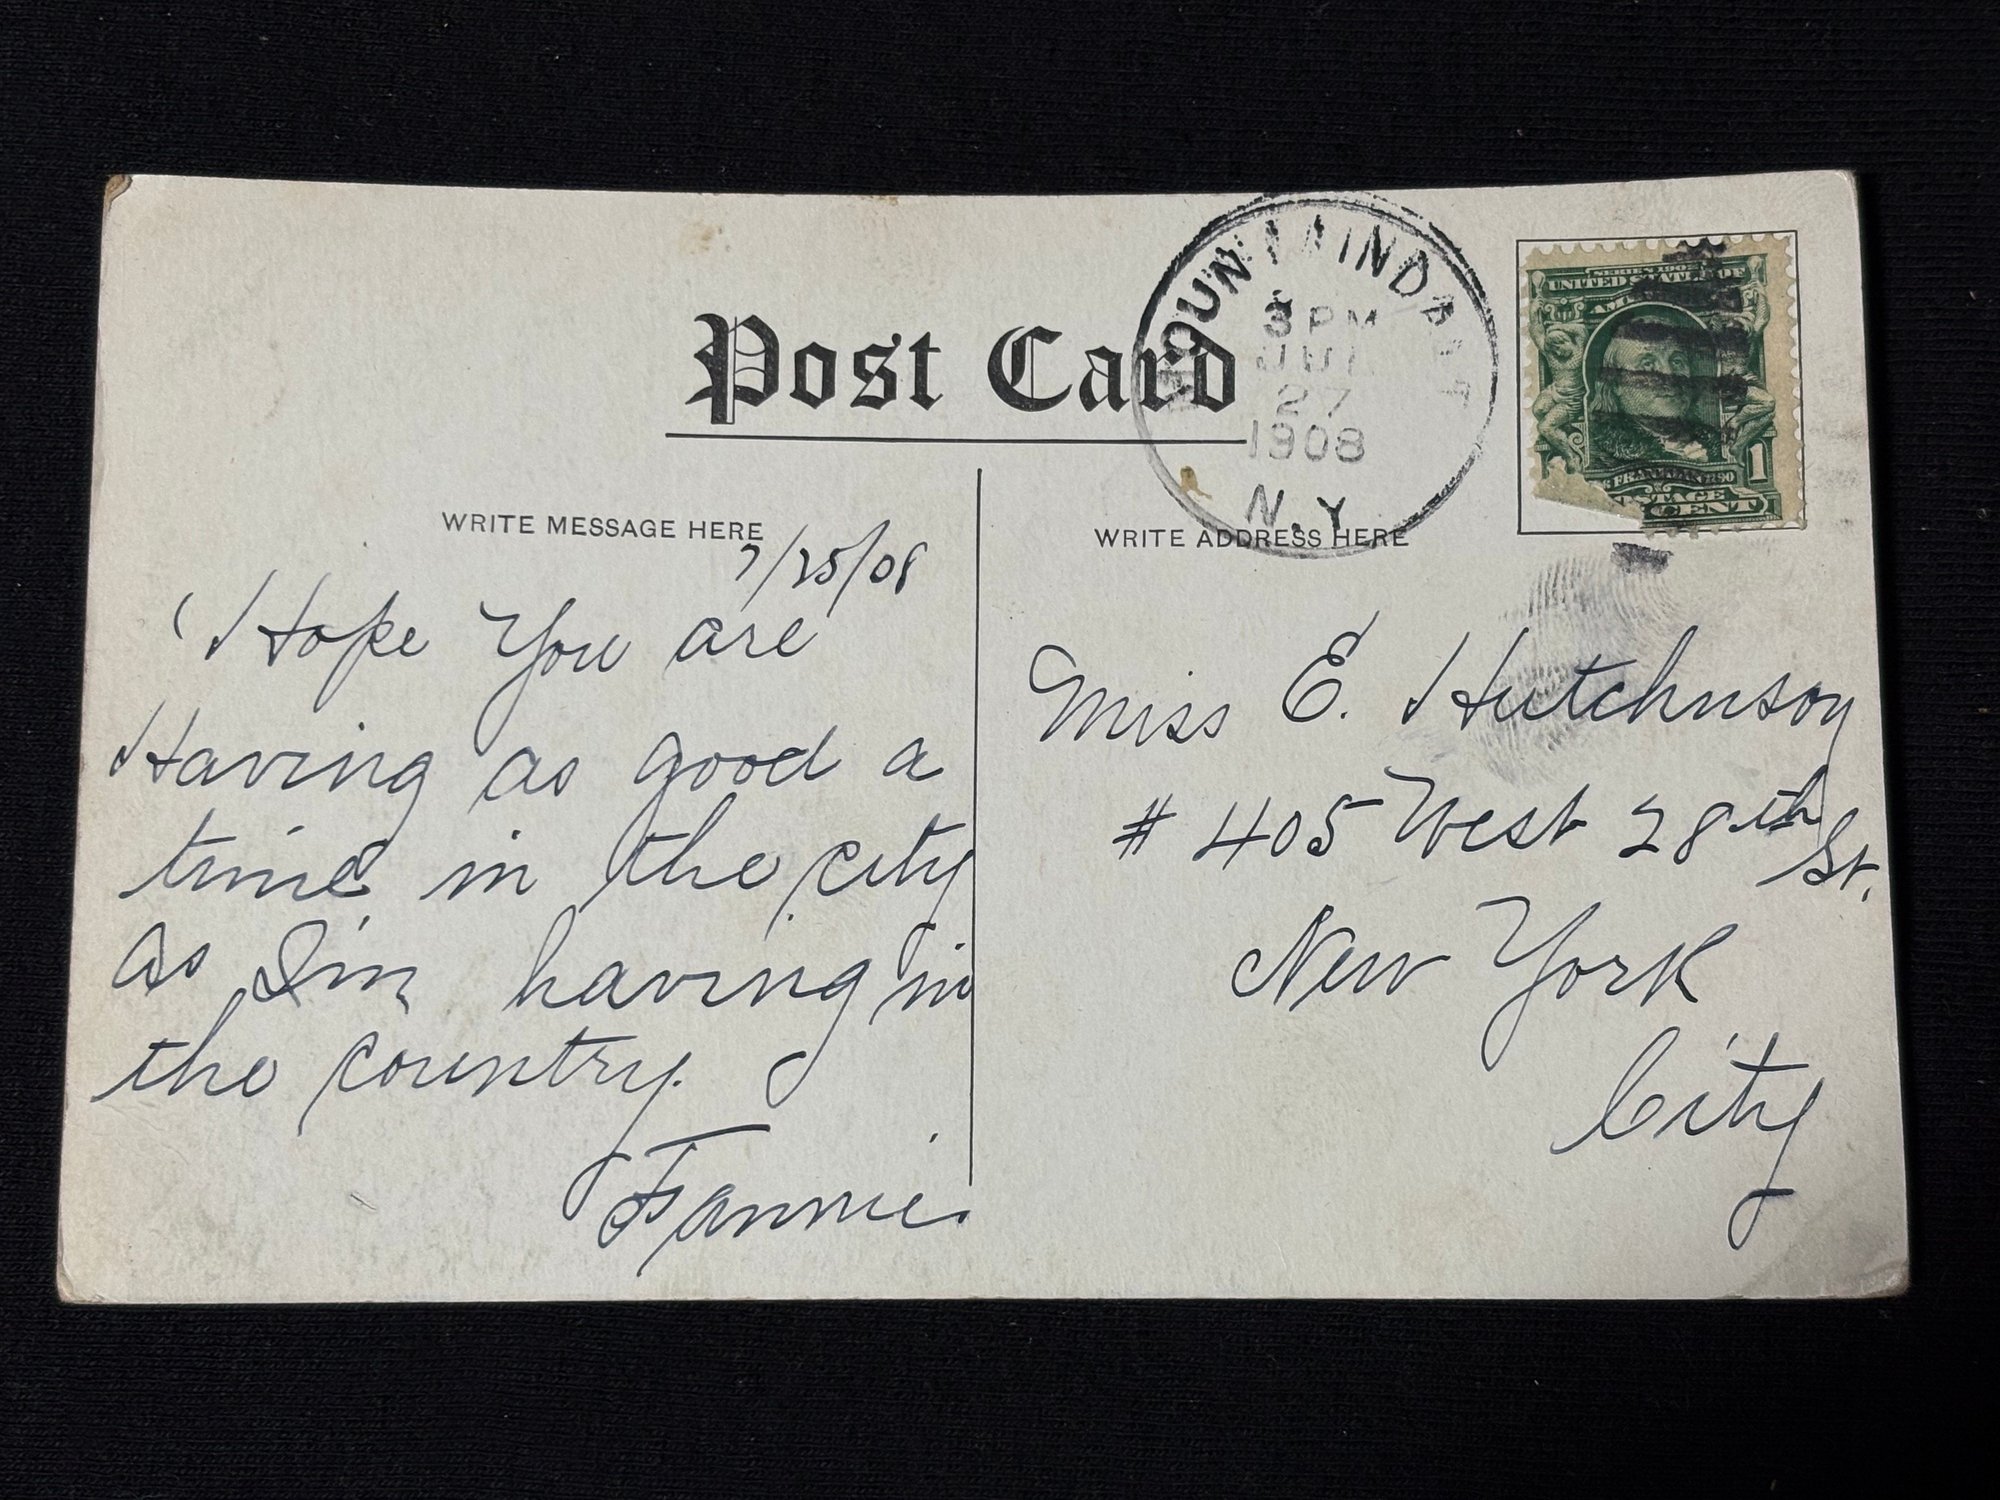 Post Card
MOUNTAINDALE
3 PM
JUL
27
1908
N.Y.
SERIES 1902
UNITED STATES OF
AMERICA
FRANKLIN
1790
POSTAGE
1 CENT
WRITE MESSAGE HERE
7/25/08
Hope You are
Having as good a
time in the city
as I'm having in
the country.
Fannie.
WRITE ADDRESS HERE
Miss E. Hutchnson
# 405 West 28th St.
New York
City